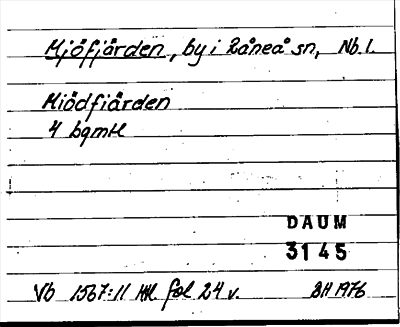 Mjöfjärden, by i Råneå sn, Nb. l.
Miödfiärden
4 bqmtl
DAUM
3145
Vb 1567:11 HH. fol 24 v. BH 1976